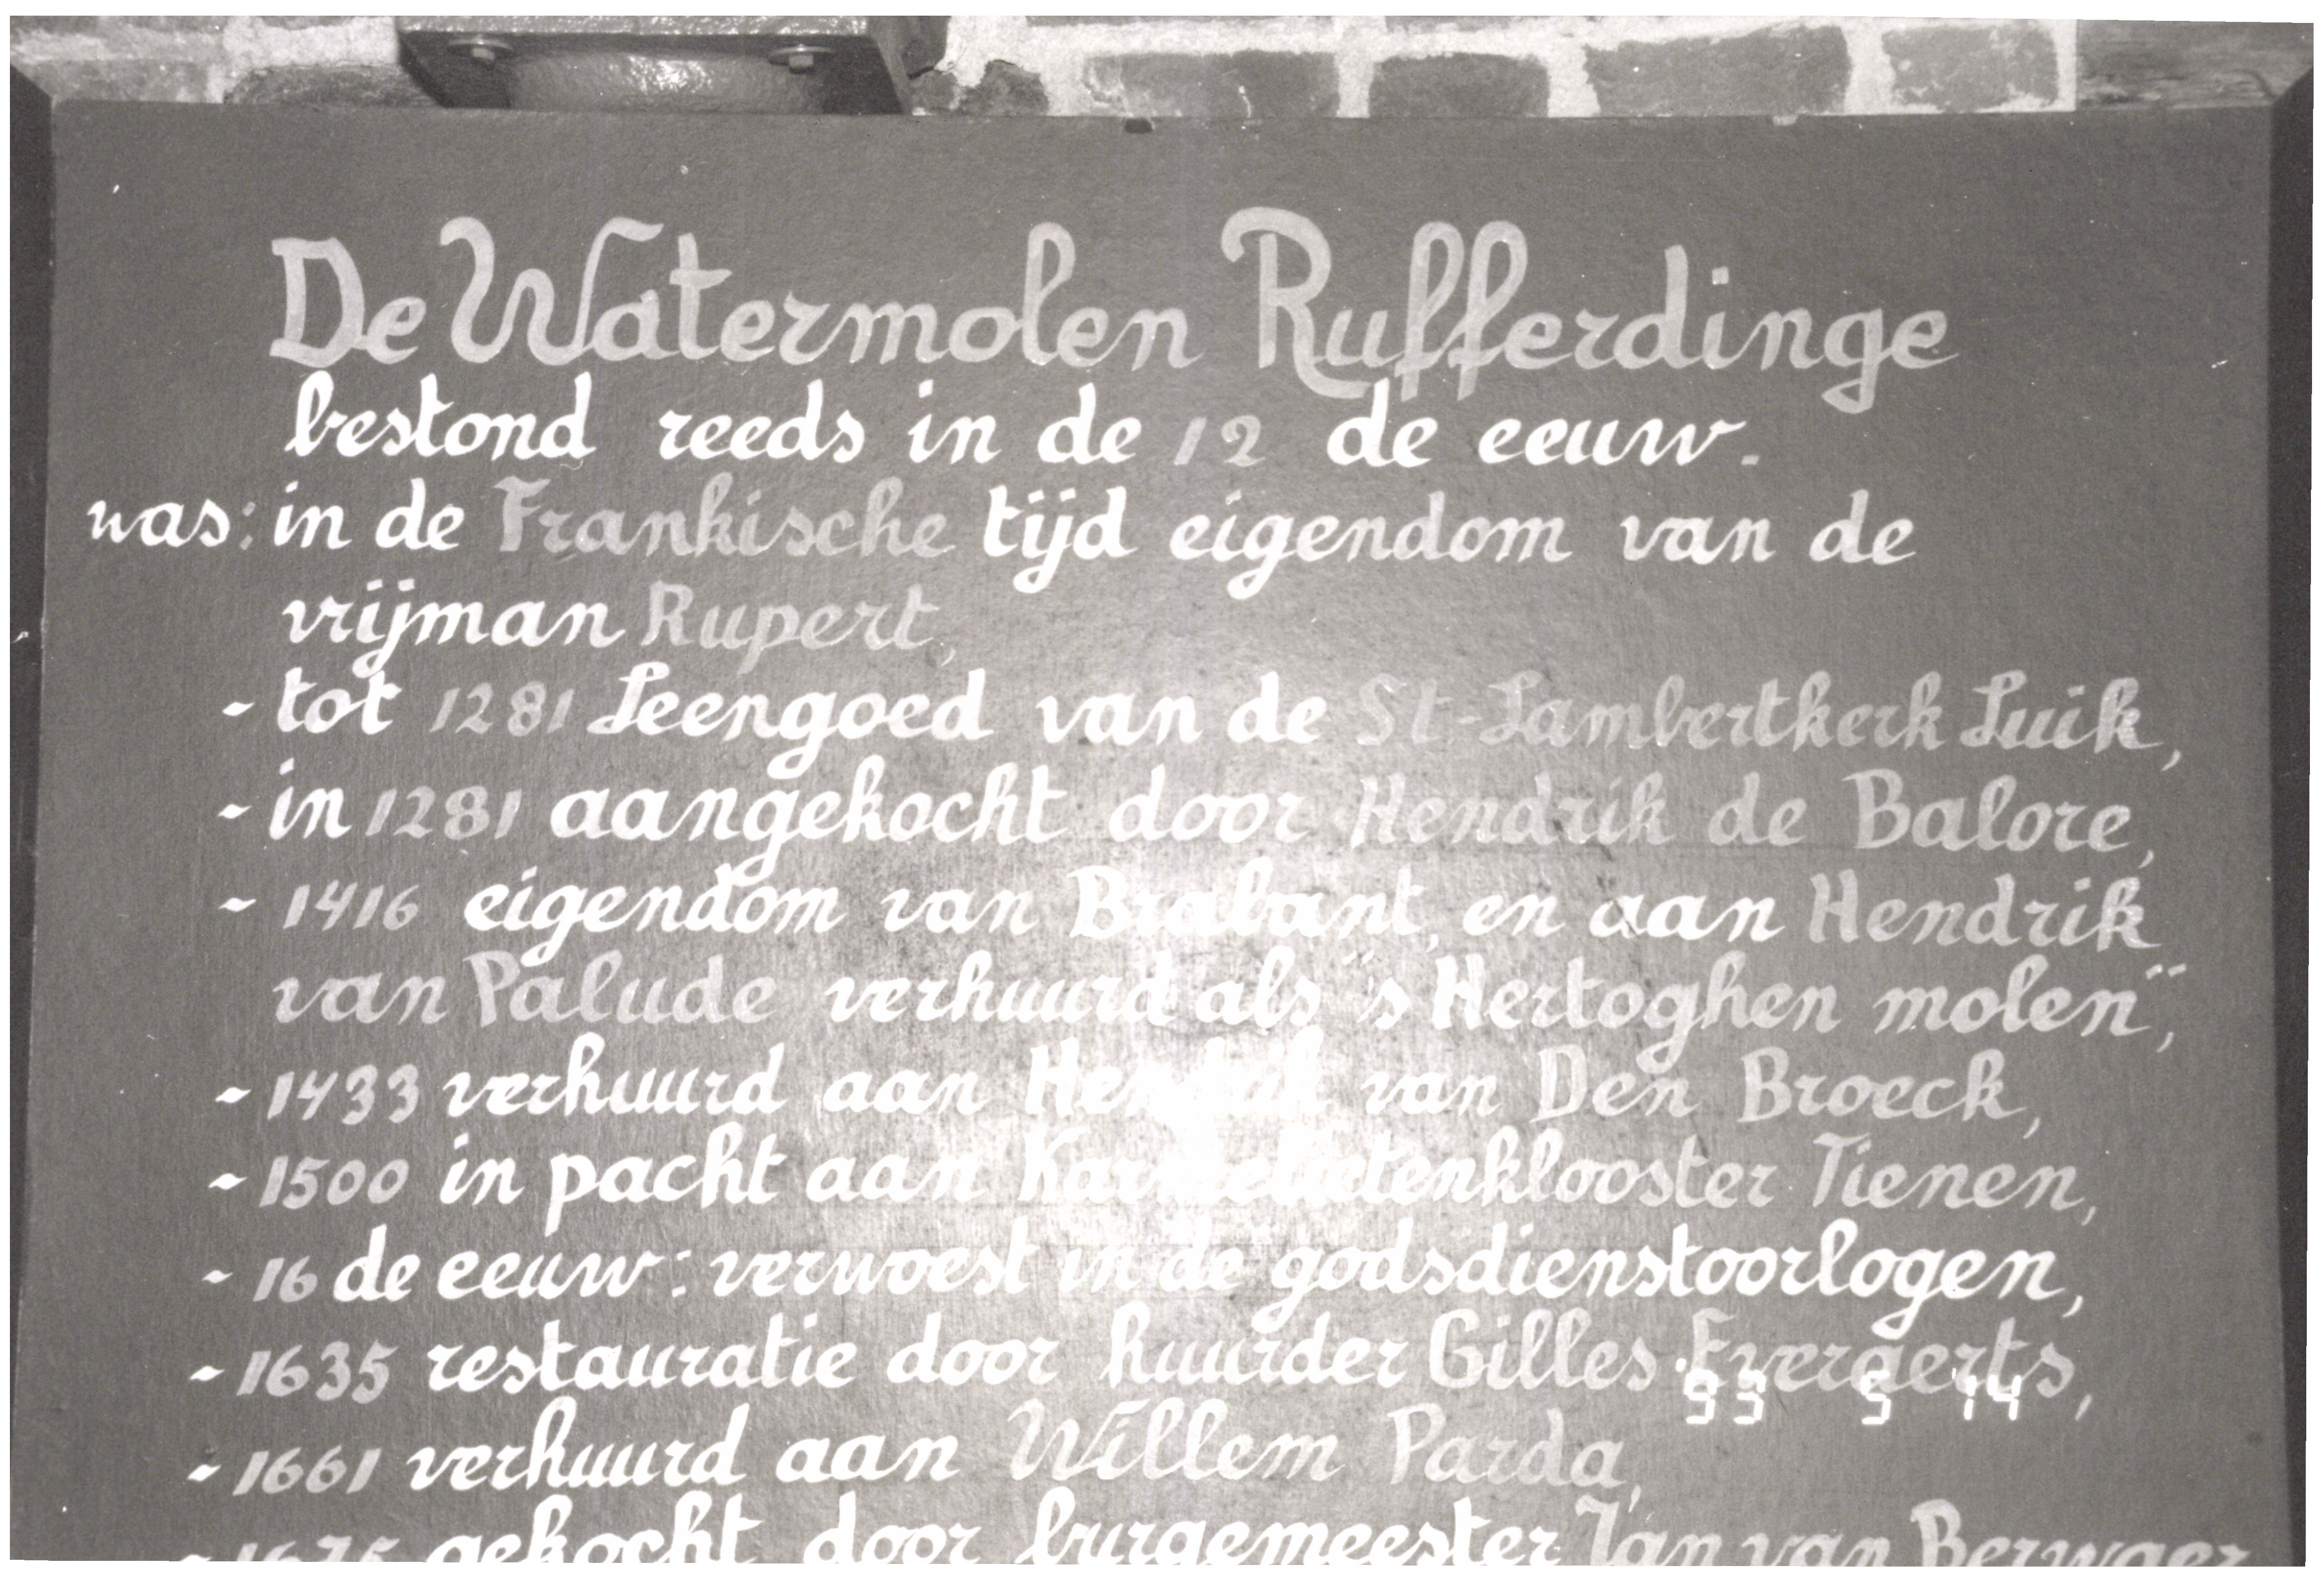 De Watermolen Rufferdinge
bestond reeds in de 12 de eeuw.
was: in de Frankische tijd eigendom van de
vrijman Rupert,
- tot 1281 Leengoed van de St-Lambertkerk Luik,
- in 1281 aangekocht door Hendrik de Balore,
- 1416 eigendom van Brabant, en aan Hendrik
van Palude verhuurd als "s Hertoghen molen",
- 1433 verhuurd aan Hendrik van Den Broeck,
- 1500 in pacht aan Karmelietenklooster Tienen,
- 16 de eeuw: verwoest in de godsdienstoorlogen,
- 1635 restauratie door huurder Gilles Everaerts,
93 5 14
- 1661 verhuurd aan Willem Parda,
- 1675 gekocht door burgemeester Jan van